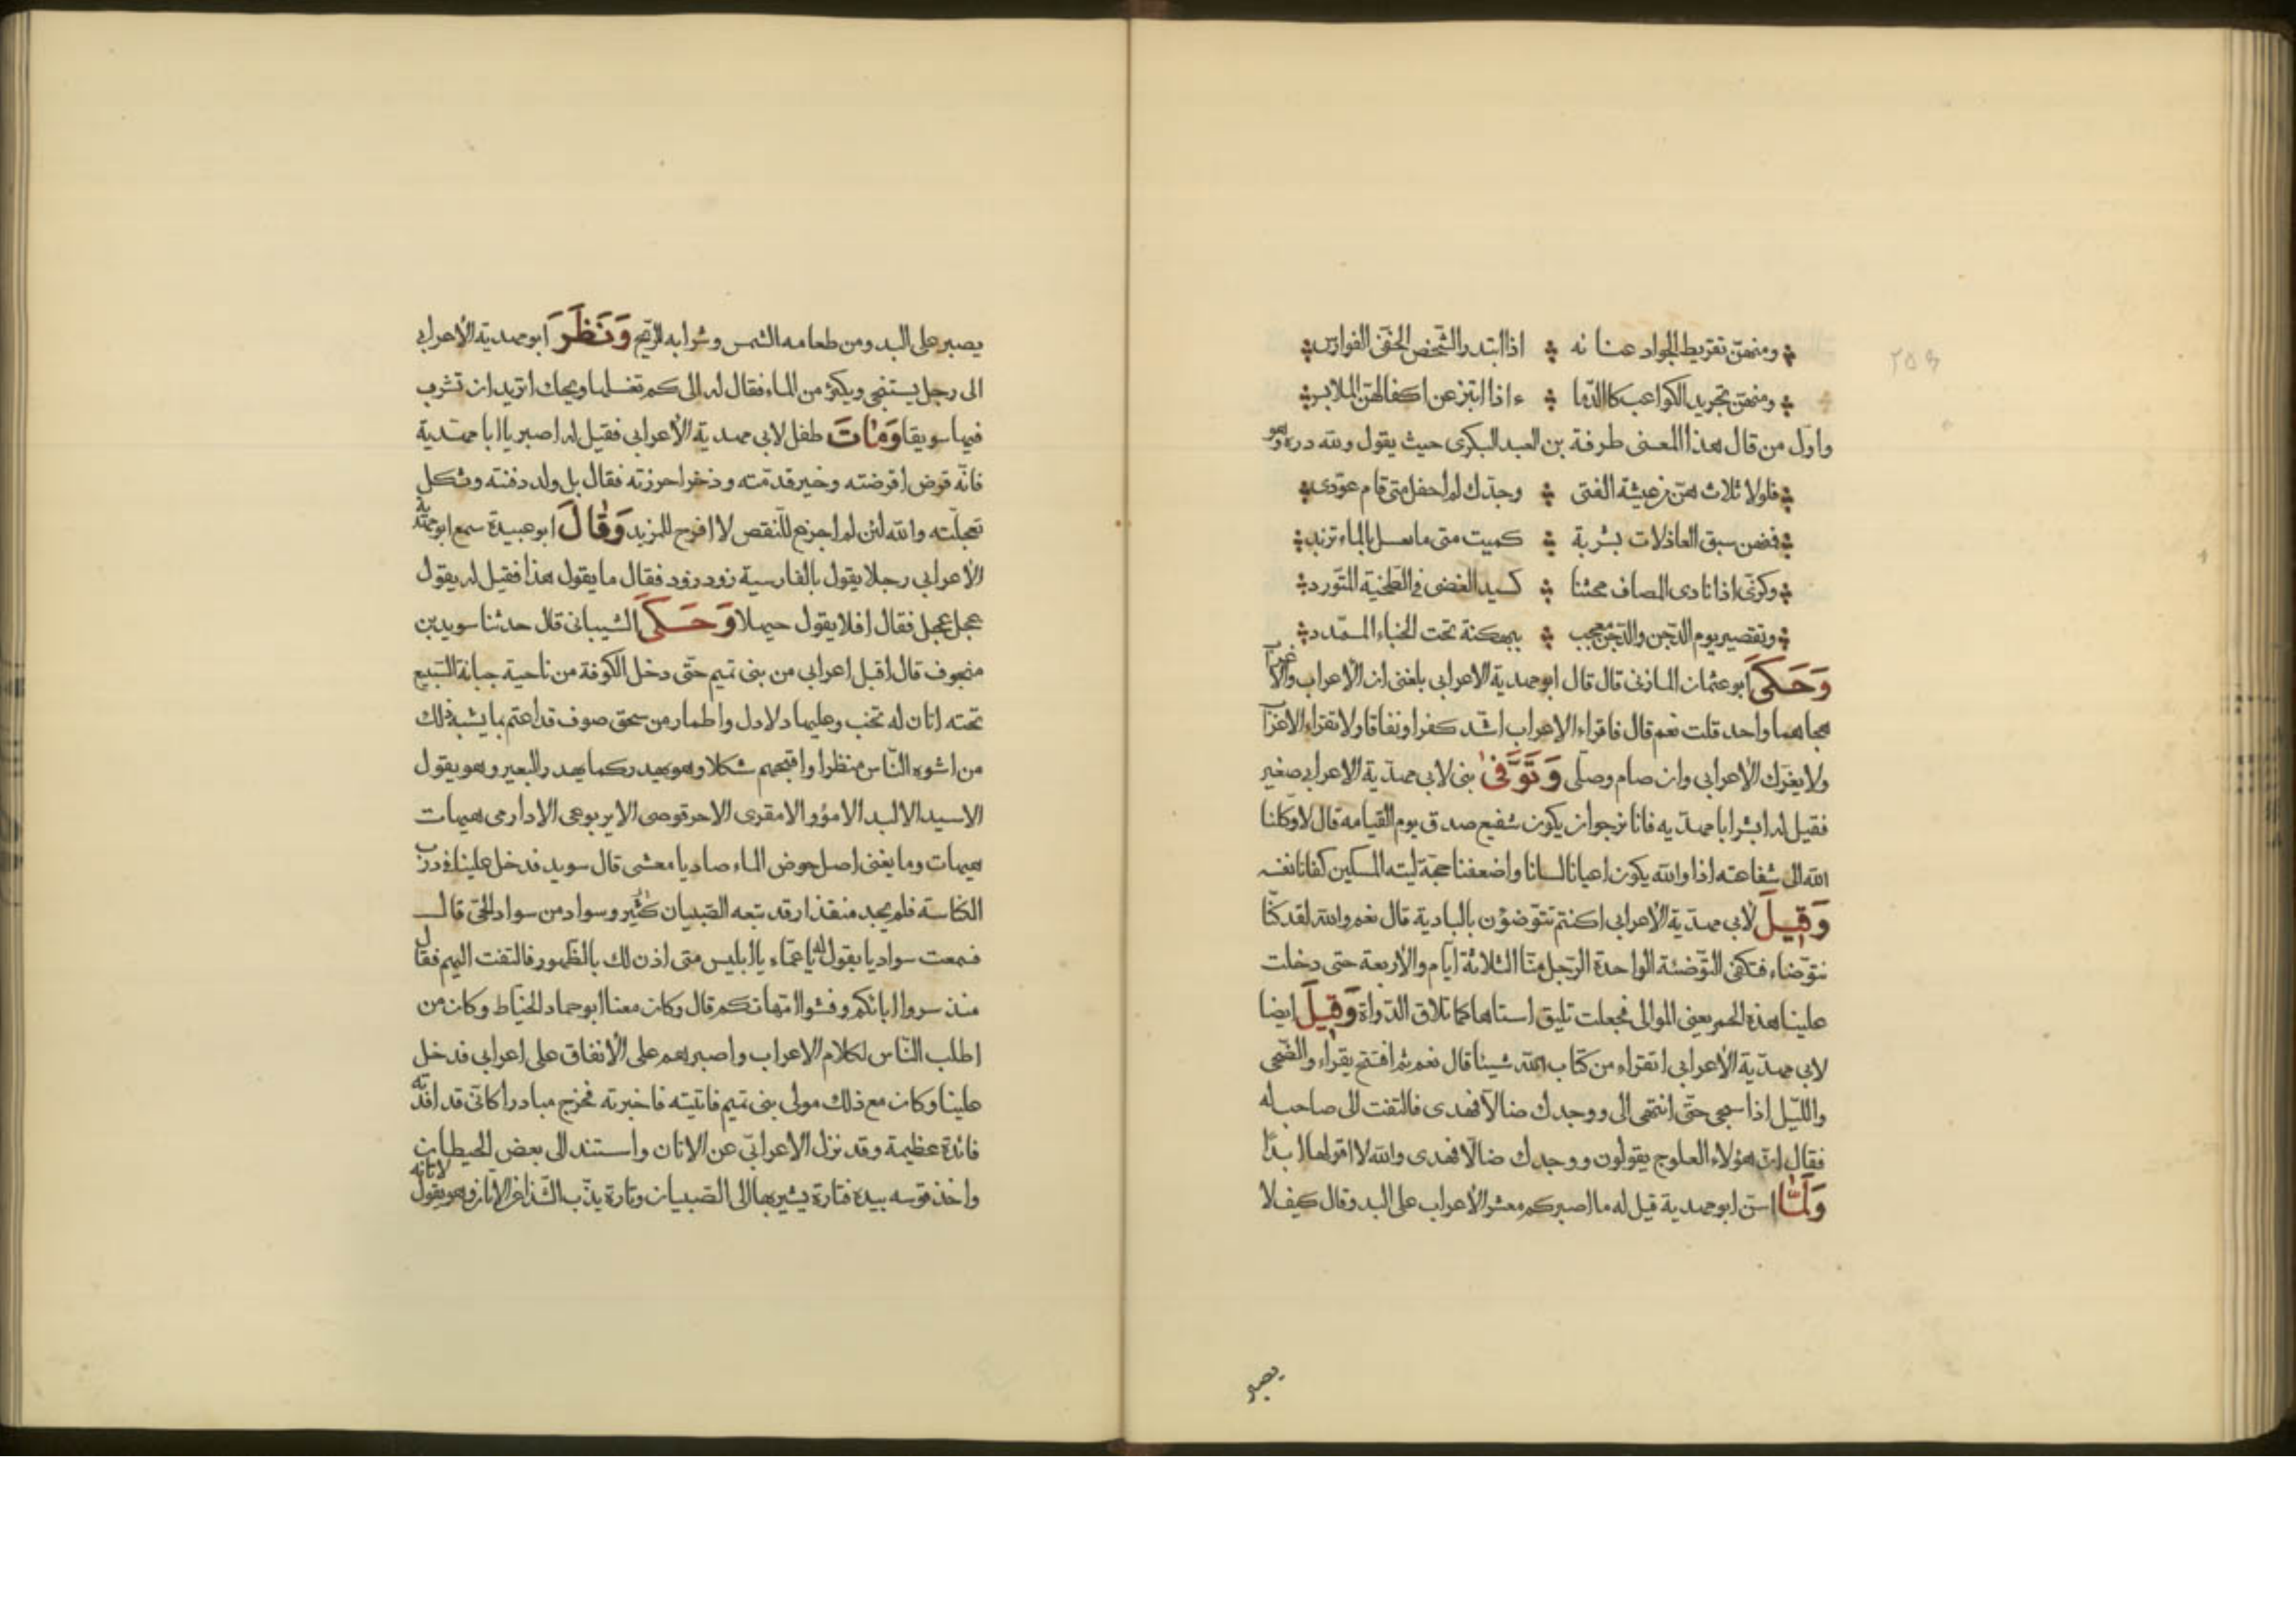 ومنهن تقريط الجواد عنانه ❖ اذا ابتدر الشخص الخفي الفوارس
ومنهن تجريد الكواعب كالدما ❖ ء اذا ابتز عن اكفالهن الملابس
واول من قال هذا المعنى طرفة بن العبد البكرى حيث يقول ولله دره وهو
فلولا ثلاث هن من عيشة الفتى ❖ وجدك لم احفل متى قام عودى
فمنهن سبق العاذلات بشربة ❖ كميت متى ما تعل بالماء تزبد
وكرى اذا نادى المصاف محنبا ❖ كسيد الغضى فى الطخية المتورد
وتقصير يوم الدجن والدجن معجب ❖ ببهكنة تحت الخباء الممدد
وَحَكَى ابو عثمان المازنى قال قال ابو مهدية الاعرابى بلغنى ان الأعراب والاعراب
هجاهما واحد قلت نعم قال فاقراء الاعراب اشد كفرا ونفاقا ولا تقراء الاعراب
ولا يغرك الأعرابى وان صام وصلى وَتَوَفَّى بنى لابى مهدية الاعرابى صغير
فقيل له ابشر ابا مهديه فانا نرجو ان يكون شفيع صدق يوم القيامه قال لا وكلنا
الله الى شفاعته اذا والله يكون اعيانا لسانا واضعفنا حجة ليته المسكين كفانا نفسه
وَقِيلَ لأبى مهدية الأعرابى اكنتم تتوضؤن بالبادية قال نعم والله لقد كنا
نتوضاء فتكفى التوضئة الواحدة الرجل منا الثلاثة ايام والأربعة حتى دخلت
علينا هذه الحمر يعنى الموالى فجعلت تليق استاهها كما تلاق الدواة وَقِيلَ ايضا
لابى مهدية الأعرابى اتقراء من كتاب الله شيئا قال نعم ثم افتتح يقراء والضحى
والليل اذا سجى حتى انتهى الى ووجدك ضالا فهدى فالتفت الى صاحب له
فقال ان هؤلاء العلوج يقولون ووجدك ضالا فهدى والله لا اقولها ابدا
وَلَمَّا اسن ابو مهدية قيل له ما اصبركم معشر الأعراب على البدو قال كيف لا
يصبر
يصبر على البدو من طعامه الشمس وشرابه الريح وَنَظَرَ ابو مهدية الأعرابى
الى رجل يستنجى ويكثر من الماء فقال له الى كم تغسلها ويحك اتريد ان تشرب
فيها سويقا وَمَاتَ طفل لابى مهدية الأعرابى فقيل له اصبر يا ابا مهدية
فانه قرض اقرضته وخير قدمته وذخر احرزته فقال بل ولد دفنته وثكل
تعجلته والله لئن لم اجزع للنقص لا افرح للمزيد وَقَالَ ابو عبيدة سمع ابو مهدية
الأعرابى رجلا يقول بالفارسية زود زود فقال ما يقول هذا فقيل له يقول
عجل عجل فقال افلا يقول حيهلا وَحَكَى الشيبانى قال حدثنا سويد بن
منجوف قال اقبل اعرابى من بنى تميم حتى دخل الكوفة من ناحية جبانة السبيع
تحته اتان له تخب وعليها دلادل واطمار من سحق صوف قد اعتم بما يشبه ذلك
من اشوه الناس منظرا واقبحهم شكلا وهو يهدر كما يهدر البعير وهو يقول
الاسيد الالبد الامؤو الامقرى الاحرقوصى الايربوعى الادارمى هيهات
هيهات وما يغنى اصل حوض الماء صاديا معشى قال سويد فدخل علينا فى درب
الكناسة فلم يجد منفذا وقد تبعه الصبيان كثير وسواد من سواد الحى قال
فسمعت سواديا يقول له يا عماء يا ابليس متى اذن لك بالظهور فالتفت اليهم فقال
منذ سروا اباءكم وفشوا امهاتكم قال وكان معنا ابو حماد الخياط وكان من
اطلب الناس لكلام الاعراب واصبرهم على الأنفاق على اعرابى فدخل
علينا وكان مع ذلك مولى بنى تميم فاتيته فاخبرته فخرج مبادرا كانى قد افدته
فائدة عظيمة وقد نزل الاعرابى عن الاتان واستند الى بعض الحيطان
واخذ قوسه بيده فتارة يشير بها الى الصبيان وتارة يذب الشذا عن الاتان وهو يقول لاتانه